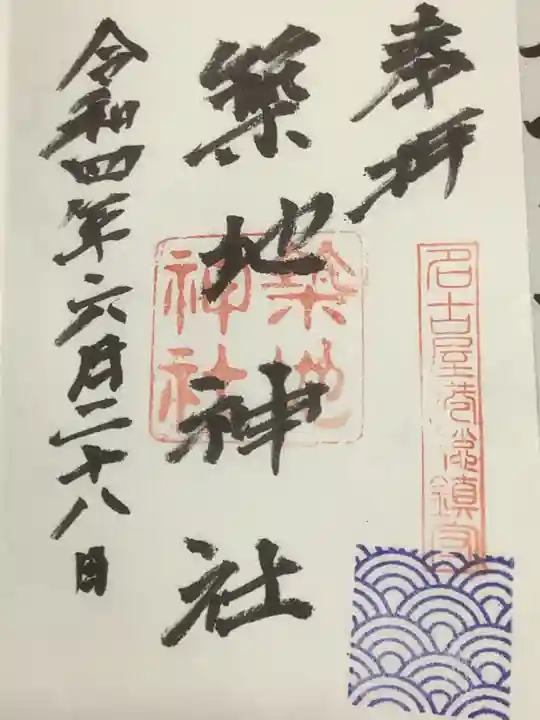 奉拝
名古屋港総鎮守
築地神社
築地
神社
令和四年六月二十八日